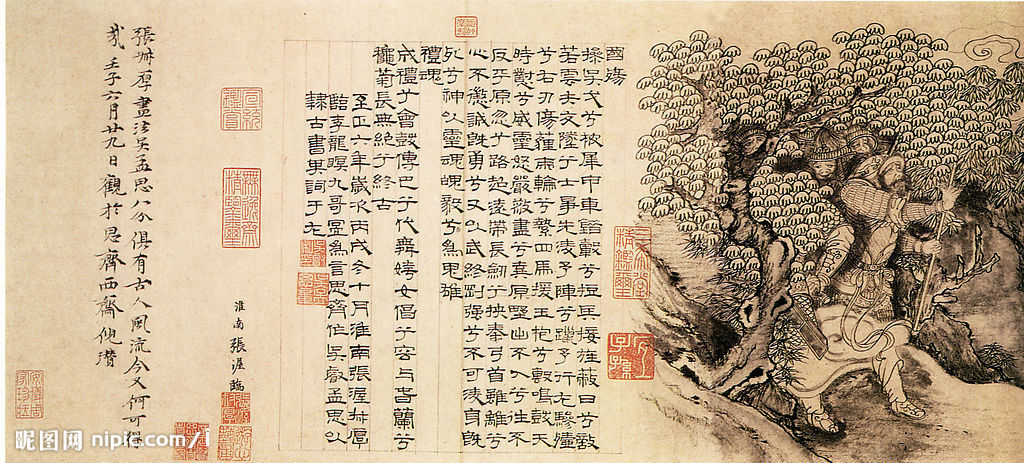 國殤
操吳戈兮被犀甲車錯轂兮短兵接旌蔽日兮敵
若雲矢交墜兮士爭先凌予陣兮躐予行左驂殪
兮右刃傷霾兩輪兮縶四馬援玉枹兮擊鳴鼓天
時懟兮威靈怒嚴殺盡兮棄原壄出不入兮往不
反平原忽兮路超遠帶長劍兮挾秦弓首雖離兮
心不懲誠既勇兮又以武終剛強兮不可凌身既
死兮神以靈魂魄毅兮為鬼雄
禮魂
成禮兮會鼓傳巴兮代舞姱女倡兮容與春蘭兮
龝菊長無絕兮終古
至正六年歲次丙戌冬十月淮南張渥叔厚
臨李龍眠九哥圖為言思齊作吳睿孟思以
隸古書其詞于左
淮南張渥臨
張叔厚畫法吳孟思八分俱有古人風流今又何可得
哉壬子六月廿九日觀於思齊西齋倪瓚
昵图网 nipic.com/l